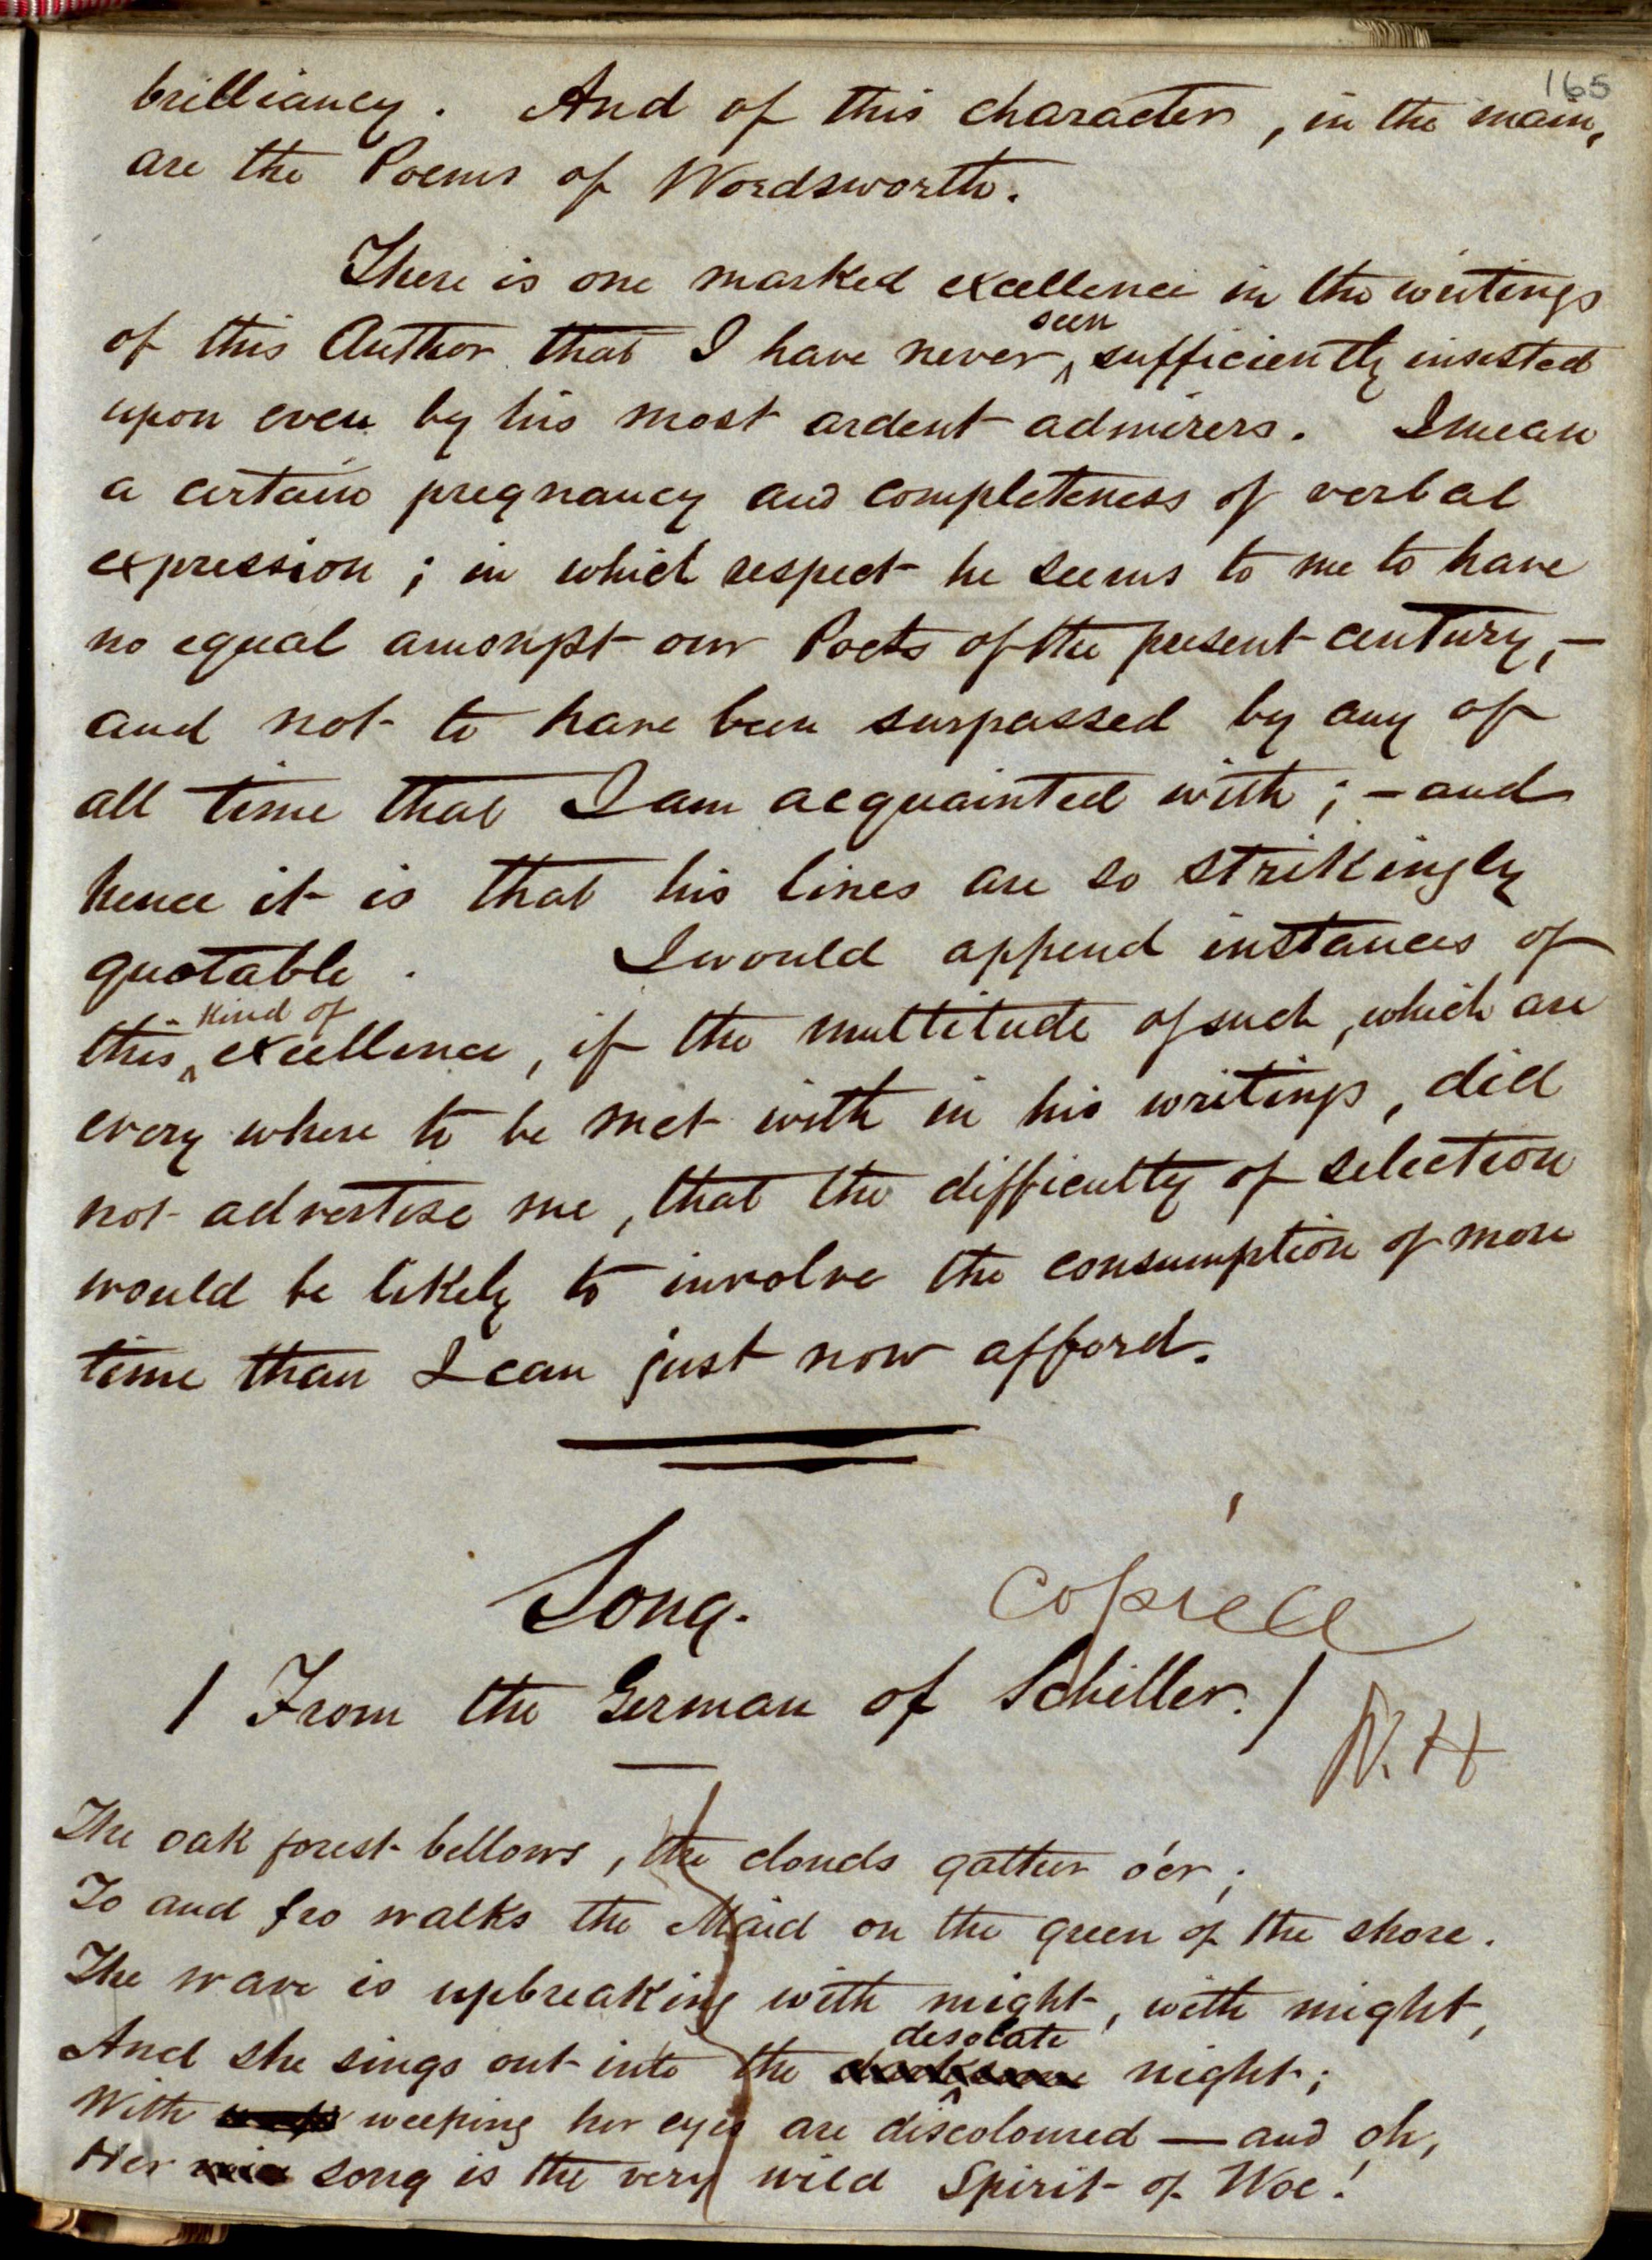 165
brilliancy. And of this character, in the main,
are the Poems of Wordsworth.
There is one marked excellence in the writings
seen
of this Author that I have never ^ sufficiently insisted
upon even by his most ardent admirers. I mean
a certain pregnancy and completeness of verbal
expression; in which respect he seems to me to have
no equal amongst our Poets of the present century, —
and not to have been surpassed by any of
all time that I am acquainted with; — and
hence it is that his lines are so strikingly
quotable. I would append instances of
kind of
this ^ excellence, if the multitude of such, which are
every where to be met with in his writings, did
not advertise me, that the difficulty of selection
would be likely to involve the consumption of more
time than I can just now afford.
Song.
copied
/ From the German of Schiller. /
N. H
The oak forest bellows, the clouds gather o'er;
To and fro walks the Maid on the green of the shore.
The wave is upbreaking with might, with might,
desolate
And she sings out into the darksome ^ night;
With weeping her eyes are discoloured — and oh,
Her song is the very wild Spirit of Woe!